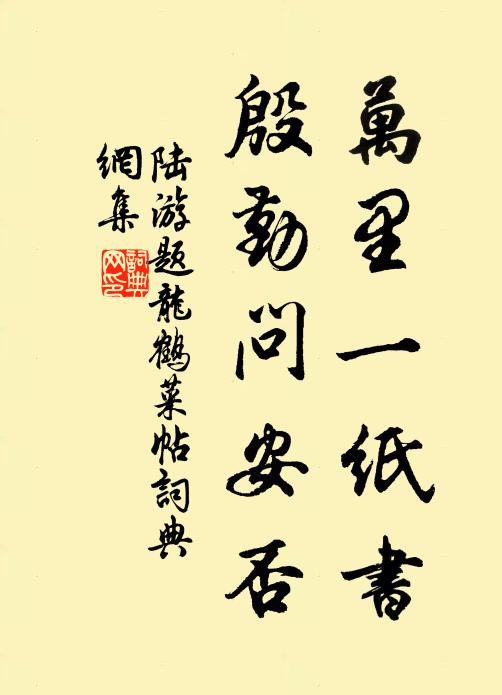 萬里一紙書
殷勤問安否
陸游題龍鶴菜帖詞典
網集
詞典
网印